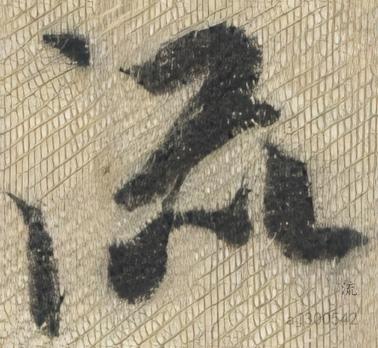 流
流
ag300542